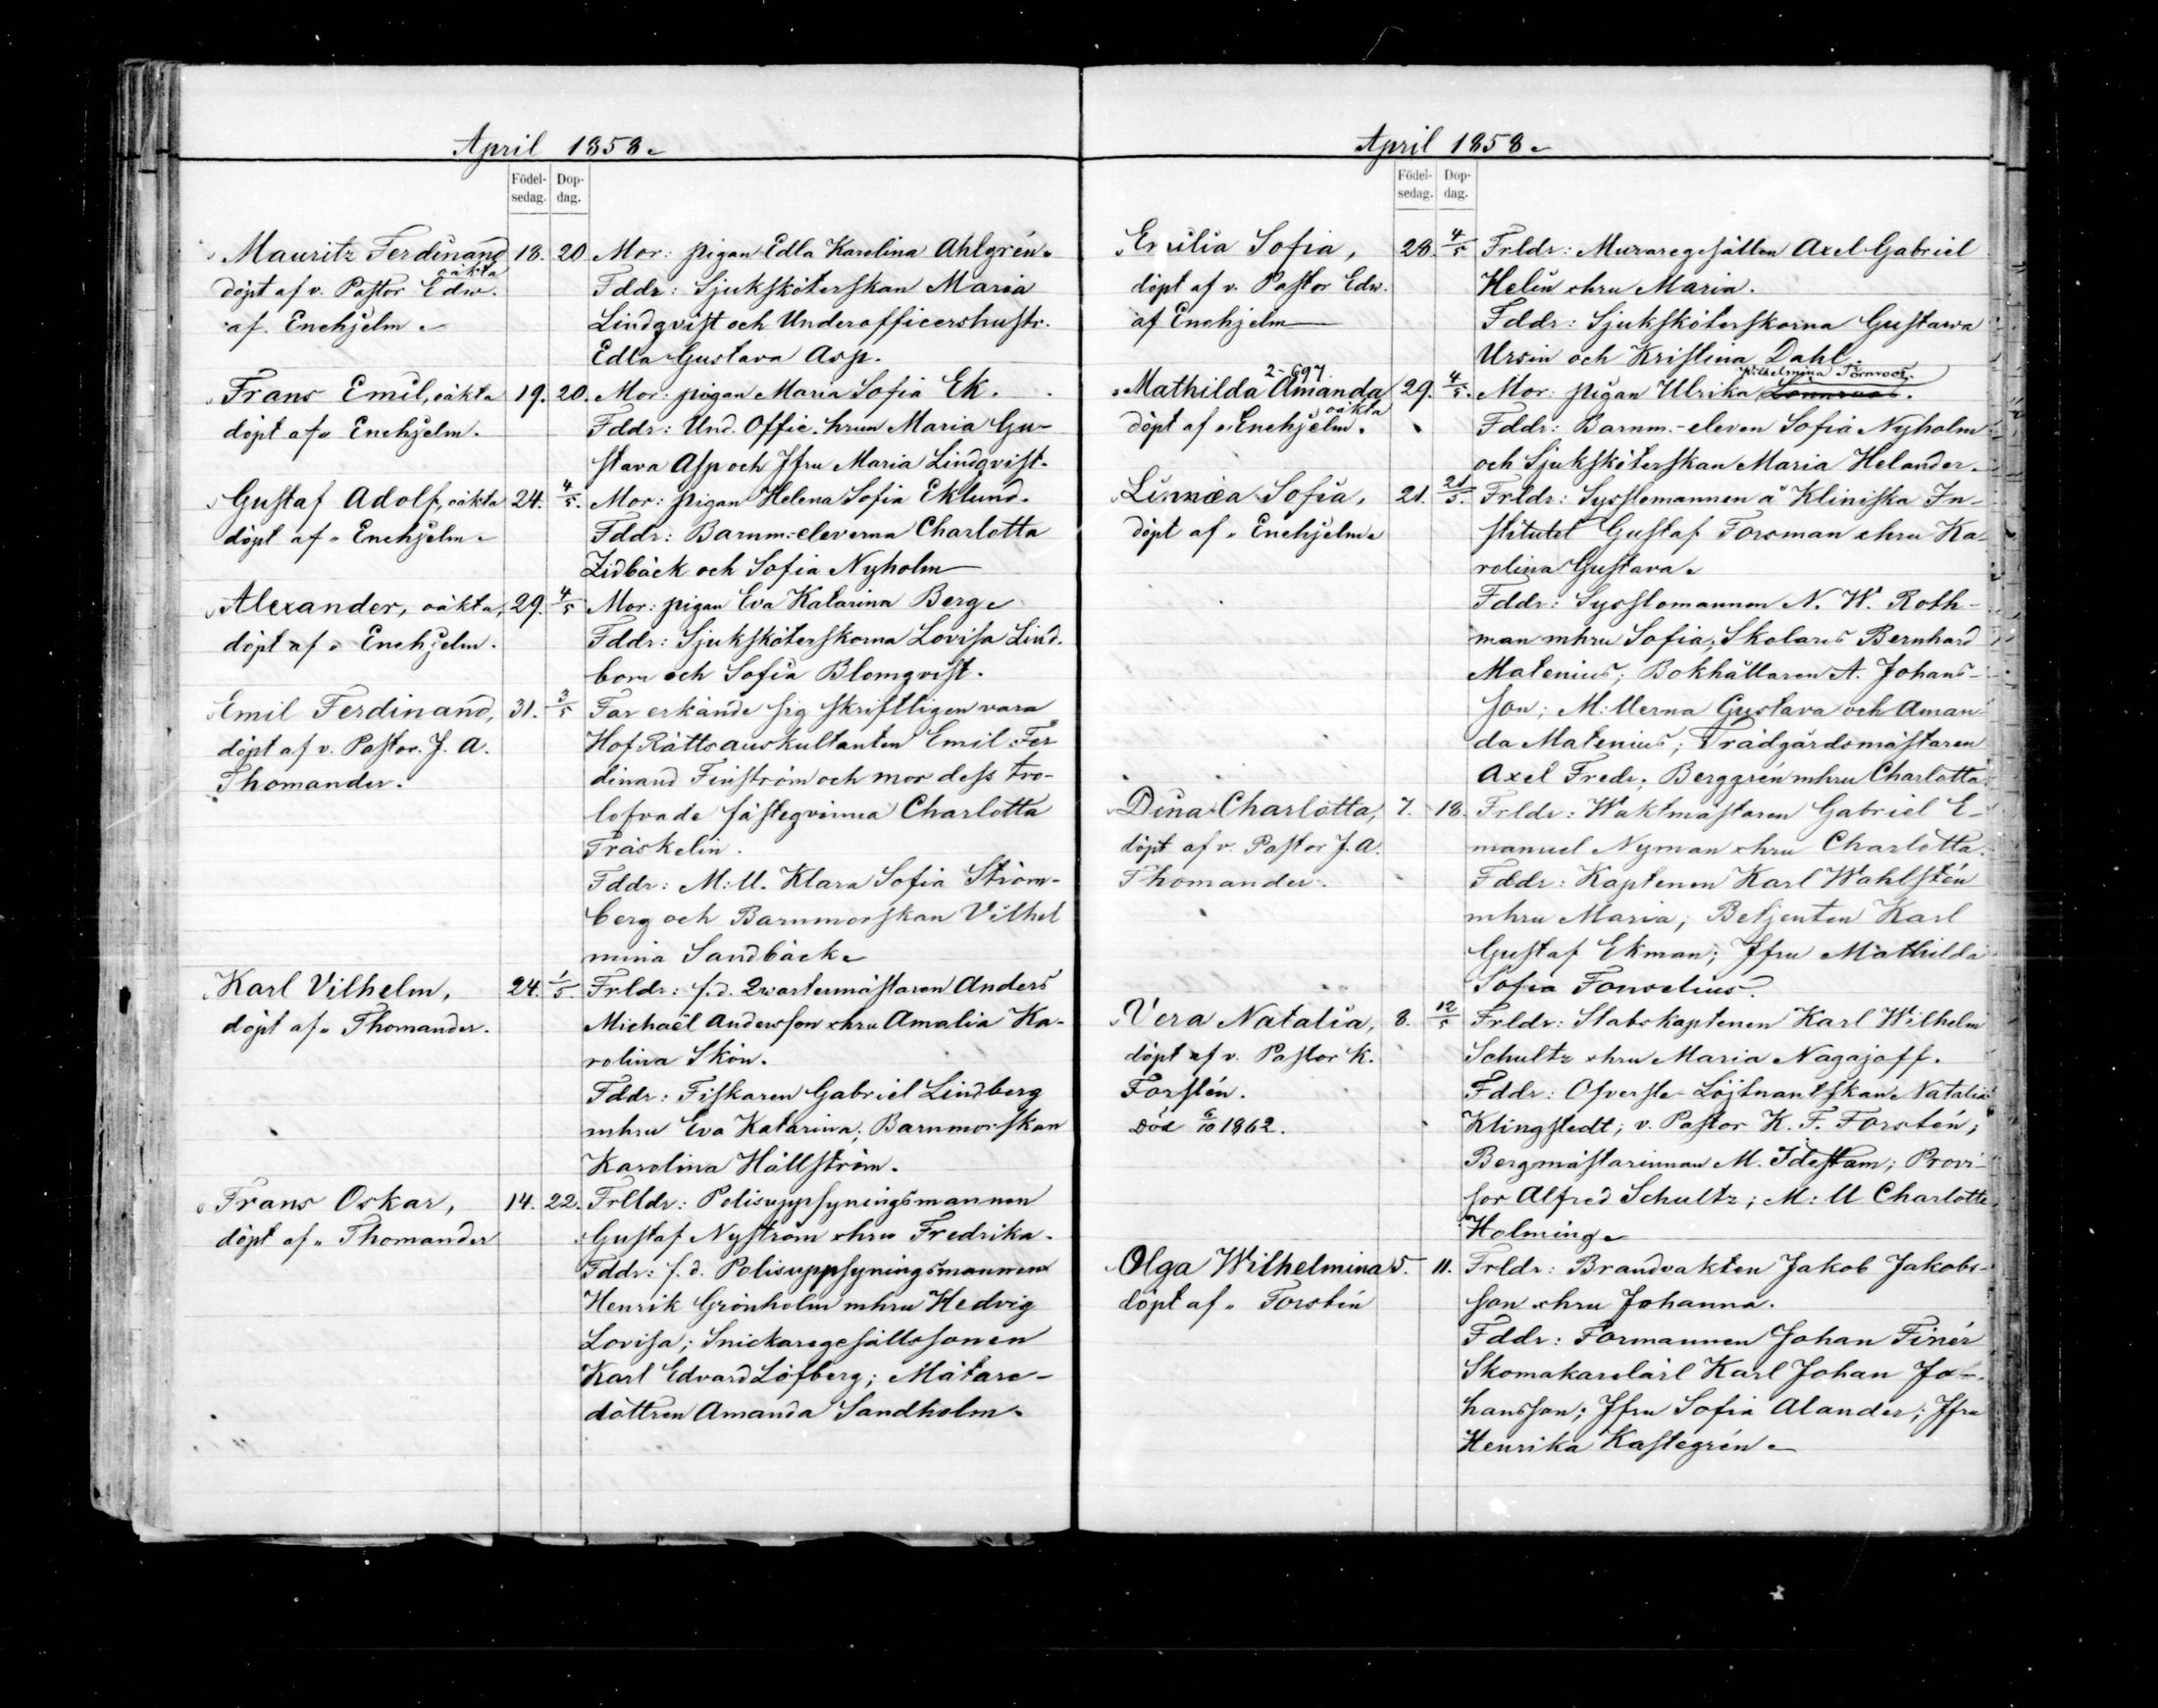 April 1858.
Födel-
sedag.
Dop-
dag.
Mauritz Ferdinand 18. 20 Mor: pigan Edla Karolina Ahlgrén.
oäkta
döpt af v. Pastor Edw. Fddr: Sjuksköterskan Maria
af Enehjelm. Lindqvist och Underofficershustr.
Edla Gustava Asp.
Frans Emil, oäkta 19. 20. Mor: pigan Maria Sofia Ek.
döpt af „ Enehjelm. Fddr: Und. Offic. hrun Maria Gu-
stava Asp och Jfru Maria Lindqvist.
Gustaf Adolf, oäkta 24. 4/5. Mor: pigan Helena Sofia Eklund.
döpt af „ Enehjelm. Fddr: Barnm.-eleverna Charlotta
Zidbäck och Sofia Nyholm
Alexander, oäkta, 29. 4/5 Mor: pigan Eva Katarina Berg.
döpt af „ Enehjelm. Fddr: Sjuksköterskorna Lovisa Lind-
bom och Sofia Blomqvist.
Emil Ferdinand, 31. 3/5 Far erkände sig skriftligen vara
döpt af v. Pastor. J. A. HofRättsauskultanten Emil Fer
Thomander. dinand Finström och mor dess tro-
lofvade fästeqvinna Charlotta
Träskelin.
Fddr: M:ll. Klara Sofia Ström-
berg och Barnmorskan Vilhel
mina Sandbäck.
Karl Vilhelm, 24. 1/5. Frldr: f.d. Qvartermästaren Anders
döpt af „ Thomander. Michaël Andersson o hru Amalia Ka-
rolina Skön.
Fddr: Fiskaren Gabriel Lindberg
m hru Eva Katarina; Barnmorskan
Karolina Hällström.
Frans Oskar, 14. 22. Frlldr: Polisuppsyningsmannen
döpt af „ Thomander Gustaf Nyström o hru Fredrika.
Fddr: f.d. Polisuppsyningsmannen
Henrik Grönholm m hru Hedvig
Lovisa; Snickaregesällssonen
Karl Edvard Löfberg; Mätare-
döttren Amanda Sandholm.
April 1858.
Födel-
sedag.
Dop-
dag.
Emilia Sofia, 28. 4/5 Frldr: Muraregesällen Axel Gabriel
döpt af v. Pastor Edw. Helin o hru Maria.
af Enehjelm Fddr: Sjuksköterskorna Gustava
Ursin och Kristina Dahl.
2-697. Wilhelmina Törnroos.
Mathilda Amanda 29. 4/5. Mor: pigan Ulrika Lönnroos.
oäkta
döpt af „ Enehjelm. Fddr: Barnm.-eleven Sofia Nyholm
och Sjuksköterskan Maria Helander.
Linnæa Sofia, 21. 21/5. Frldr: Sysslomannen å Kliniska In-
döpt af „ Enehjelm. stitutet Gustaf Forsman o hru Ka-
rolina Gustava.
Fddr: Sysslomannen N. W. Roth-
man m hru Sofia; Skolaris Bernhard
Matenius; Bokhållaren A. Johans-
son; M:llerna Gustava och Aman-
da Matenius; Trädgårdsmästaren
Axel Fredr. Berggrén m hru Charlotta.
Dina Charlotta, 7. 18. Frldr: Waktmästaren Gabriel E-
döpt af v. Pastor J. A. manuel Nyman o hru Charlotta.
Thomander. Fddr: Kaptenen Karl Wahlstén
m hru Maria; Betjenten Karl
Gustaf Ekman; Jfru Mathilda
Sofia Fonselius.
Vera Natalia, 8. 12/5 Frldr: Stabskaptenen Karl Wilhelm
döpt af v. Pastor K. Schultz o hru Maria Nagajoff.
Forstén. Fddr: Ofverste-Löjtnantskan Natalia
Död 6/10 1862. Klingstedt; v. Pastor K. F. Forstén;
Bergmästarinnan M. Idestam; Provi-
sor Alfred Schultz; M:ll Charlotte
Holming.
Olga Wilhelmina 5. 11. Frldr: Brandvakten Jakob Jakobs-
döpt af „ Forstén son o hru Johanna.
Fddr: Formannen Johan Finér
Skomakarelärl Karl Johan Jo-
hansson; Jfru Sofia Alander; Jfru
Henrika Kastegrén.